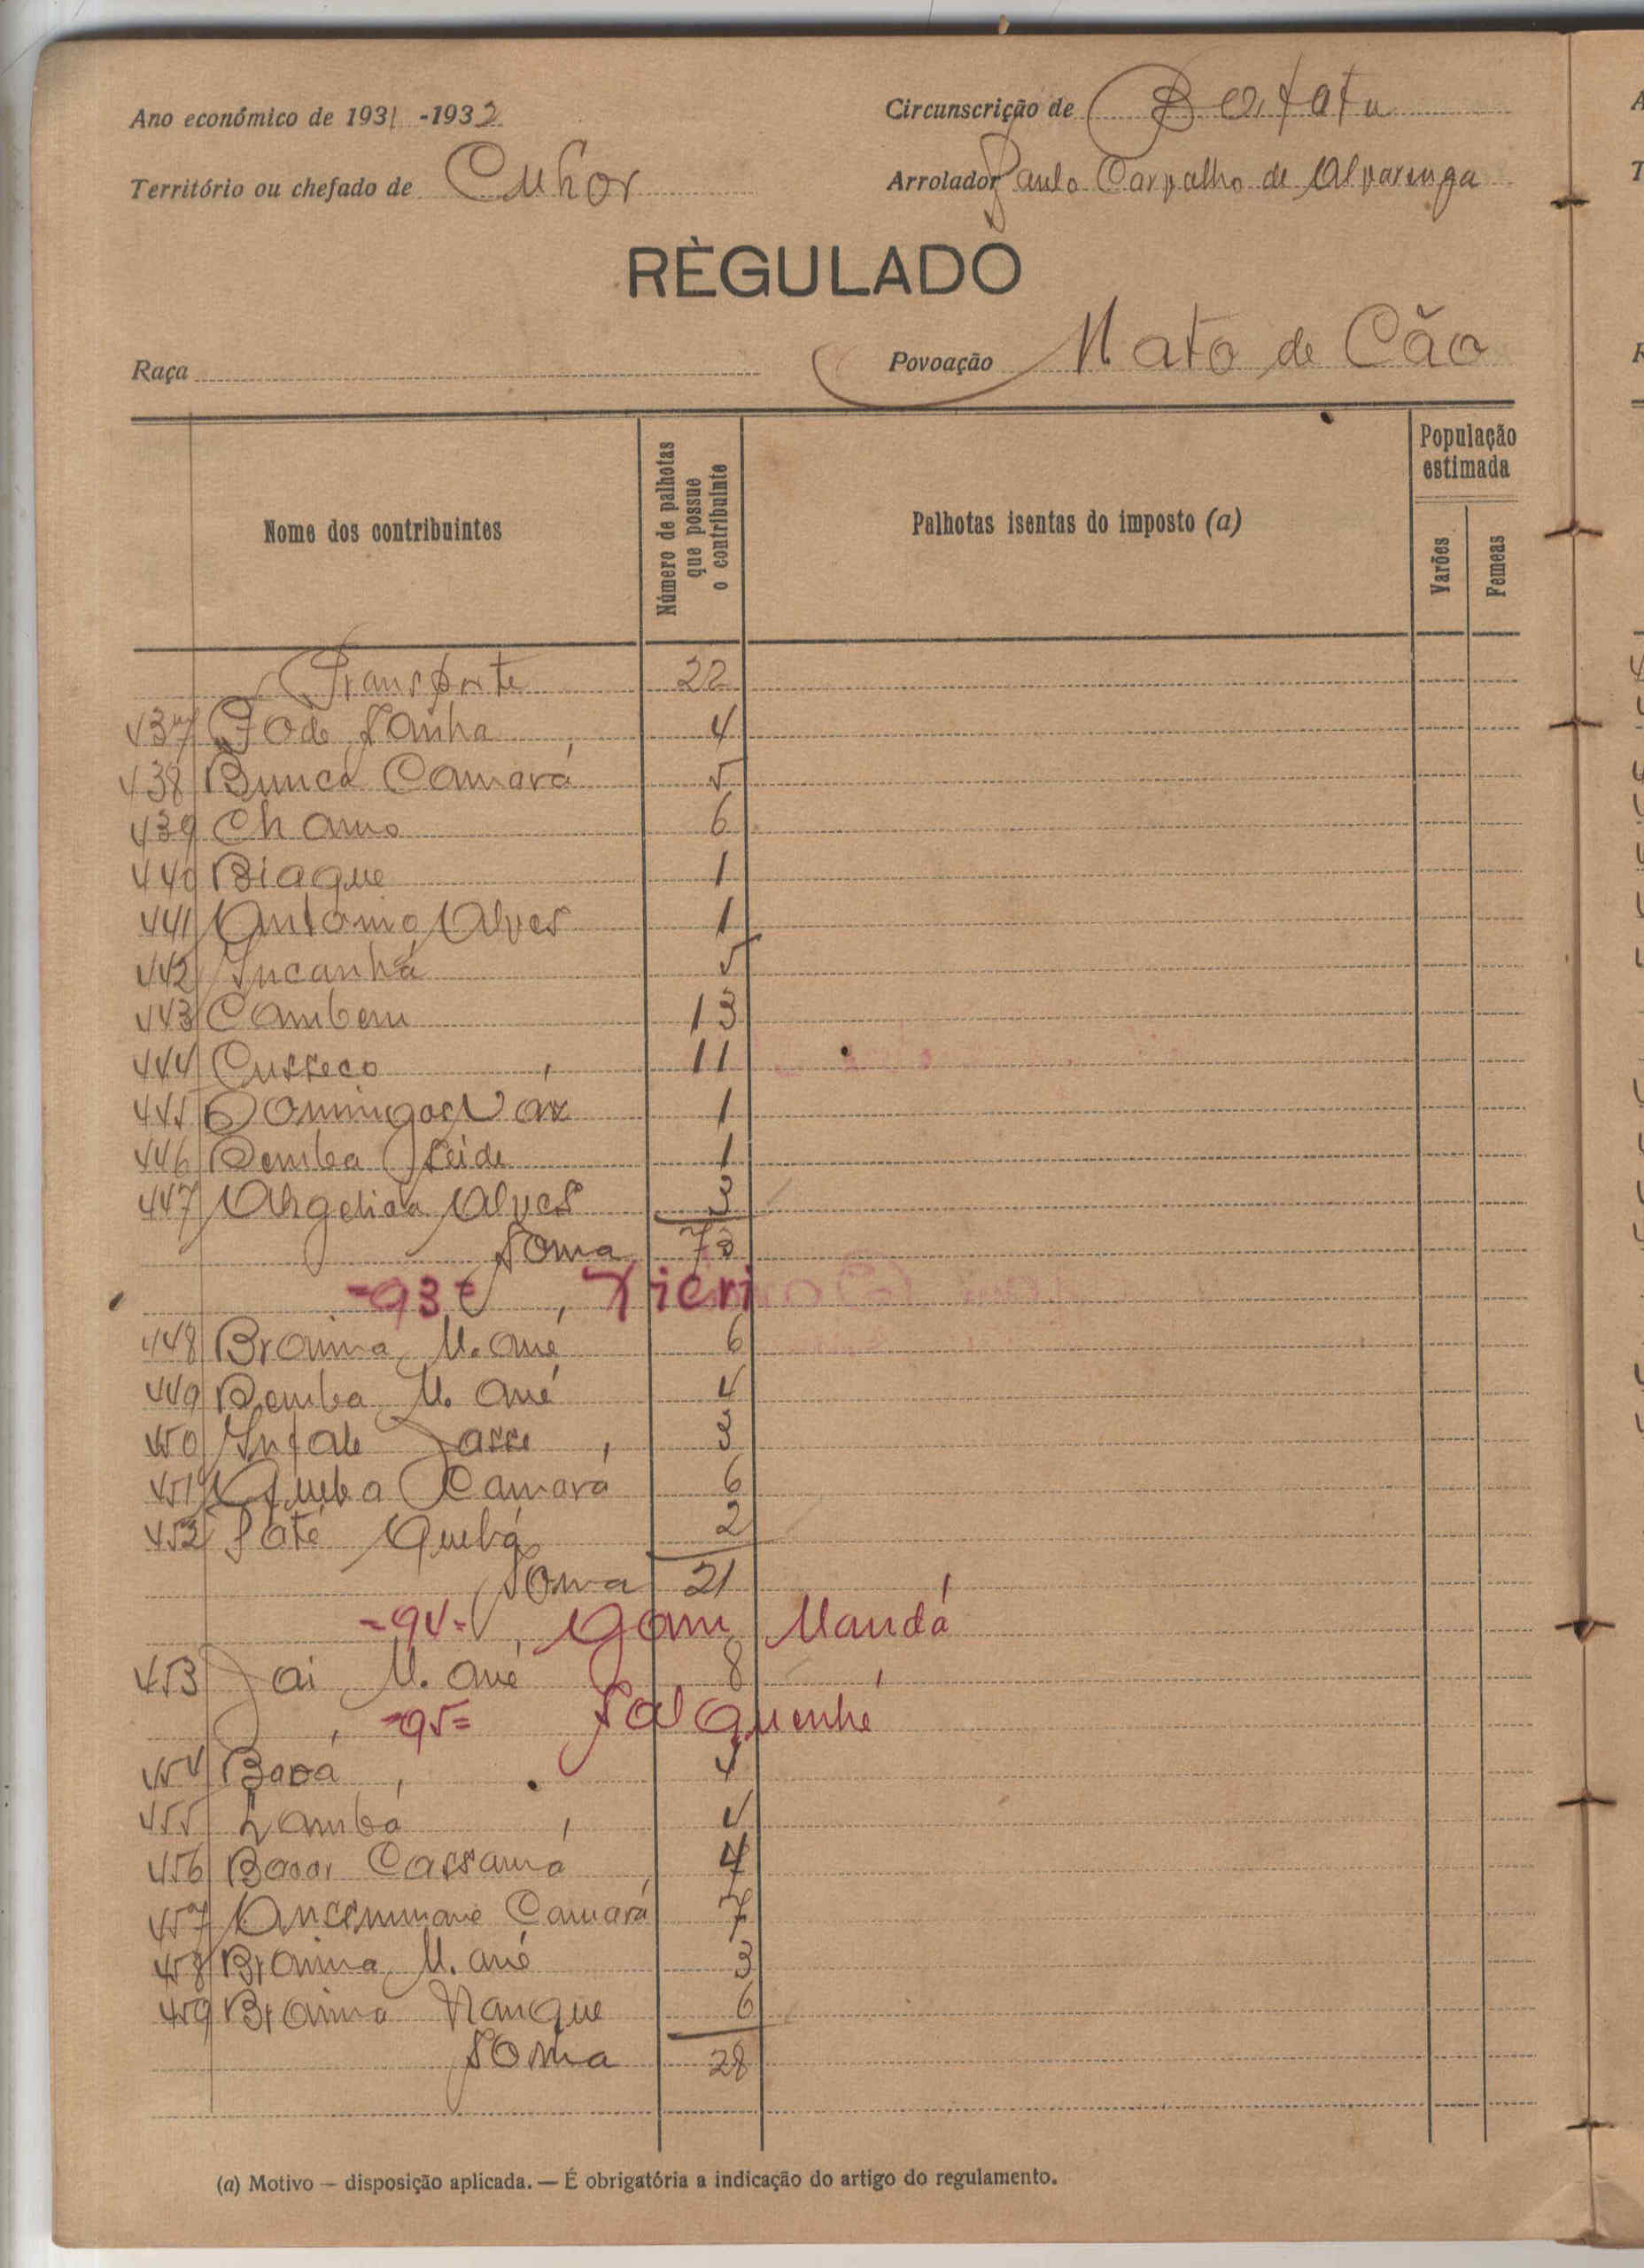 Ano económico de 1931 -1932
Circunscrição de Bafata
Território ou chefado de Cuhor
Arrolador Paulo Carvalho de Alvarenga
RÈGULADO
Raça
Povoação Mato de Cão
Nome dos contribuintes
Número de palhotas que possue o contribuinte
Palhotas isentas do imposto (a)
População estimada
Varões
Femeas
Transporte 22
437 Jode Sanha 4
438 Bunca Camará 5
439 Chamo 6
440 Biaque 1
441 Antonio Alves 1
442 Incanha 5
443 Cambem 13
444 Cusseco 11
445 Domingos Vaz 1
446 Demba Seide 1
447 Angelica Alves 3
Soma 73
-93= Xieri
448 Braima Mané 6
449 Demba Mané 4
450 Infale Jasse 3
451 Queba Camará 6
452 Saté Quebá 2
Soma 21
-94- Gam Mandá
453 Jai Mané 8
-95= Salquenhé
454 4
455 Lamba 4
456 Bacar Cassama 4
457 Ancummane Camará 7
458 Braima Mané 3
459 Braima Nanque 6
Soma 28
(a) Motivo — disposição aplicada. — É obrigatória a indicação do artigo do regulamento.